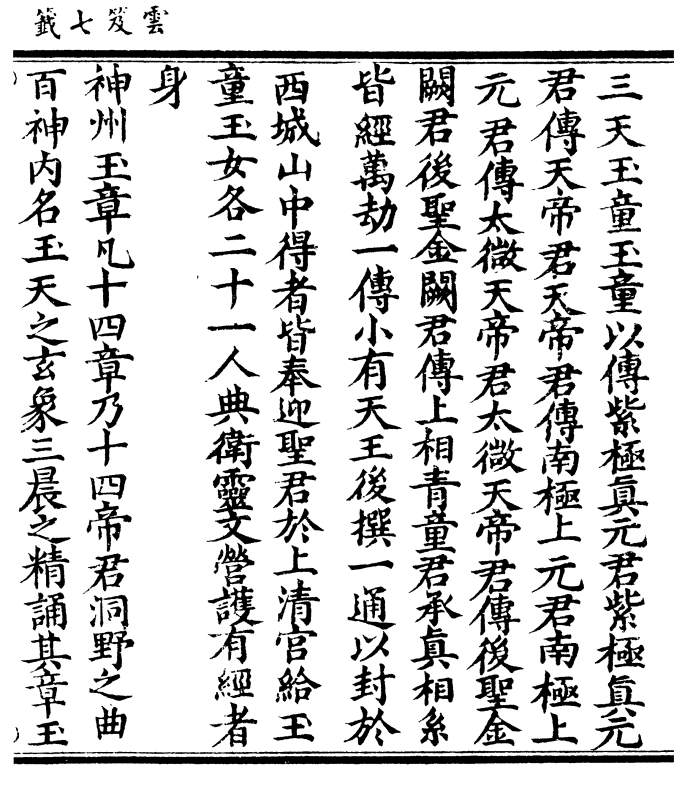 雲笈七籤
三天玉童玉童以傳紫極眞元君紫極眞元
君傳天帝君天帝君傳南極上元君南極上
元君傳太微天帝君太微天帝君傳後聖金
闕君後聖金闕君傳上相青童君承眞相系
皆經萬劫一傳小有天王後撰一通以封於
西城山中得者皆奉迎聖君於上清宫給玉
童玉女各二十一人典衛靈文營護有經者
身
神州玉章凡十四章乃十四帝君洞野之曲
百神内名玉天之玄象三晨之精誦其章玉